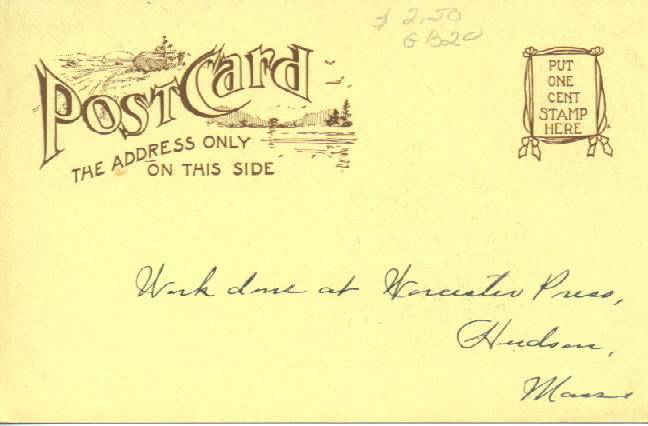 $ 2.50
GB20
POST CARD
THE ADDRESS ONLY
ON THIS SIDE
PUT
ONE
CENT
STAMP
HERE
Work done at Worcester Press,
Hudson,
Mass